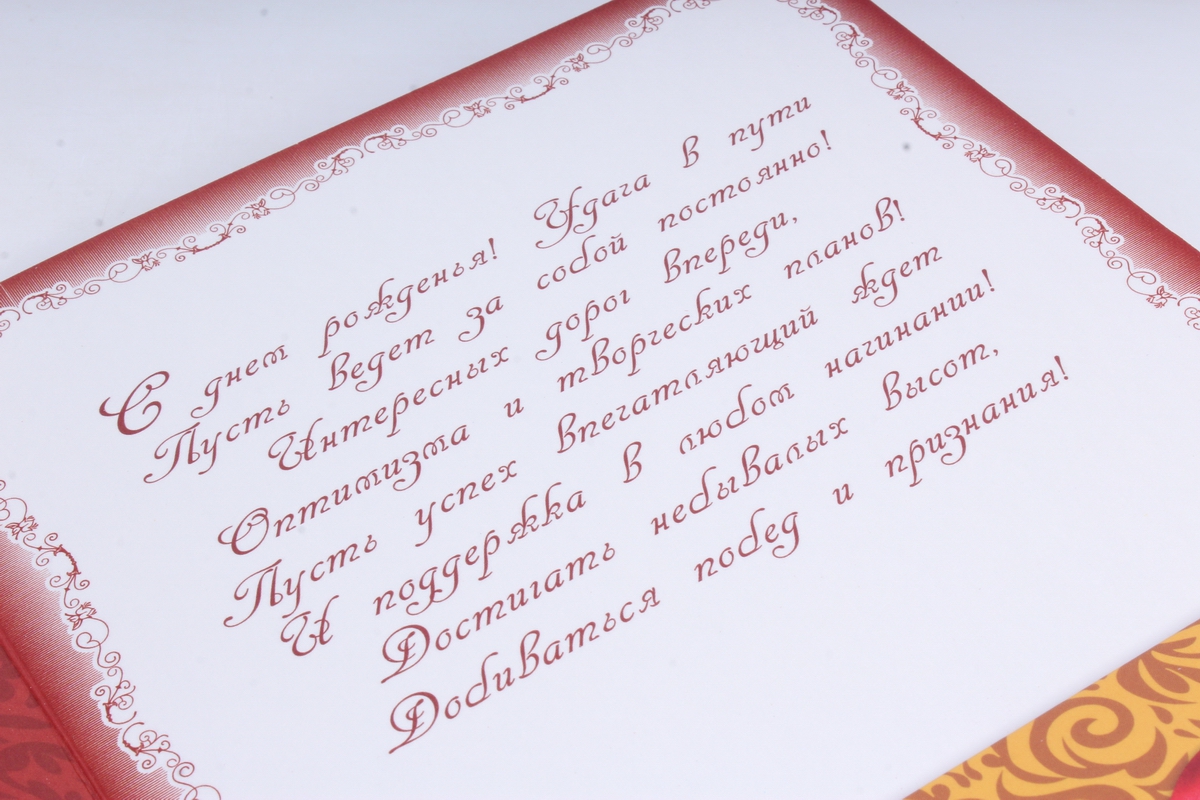 С днем рожденья! Удача в пути
Пусть ведет за собой постоянно!
Интересных дорог впереди,
Оптимизма и творческих планов!
Пусть успех впечатляющий ждет
И поддержка в любом начинании!
Достигать небывалых высот,
Добиваться побед и признания!